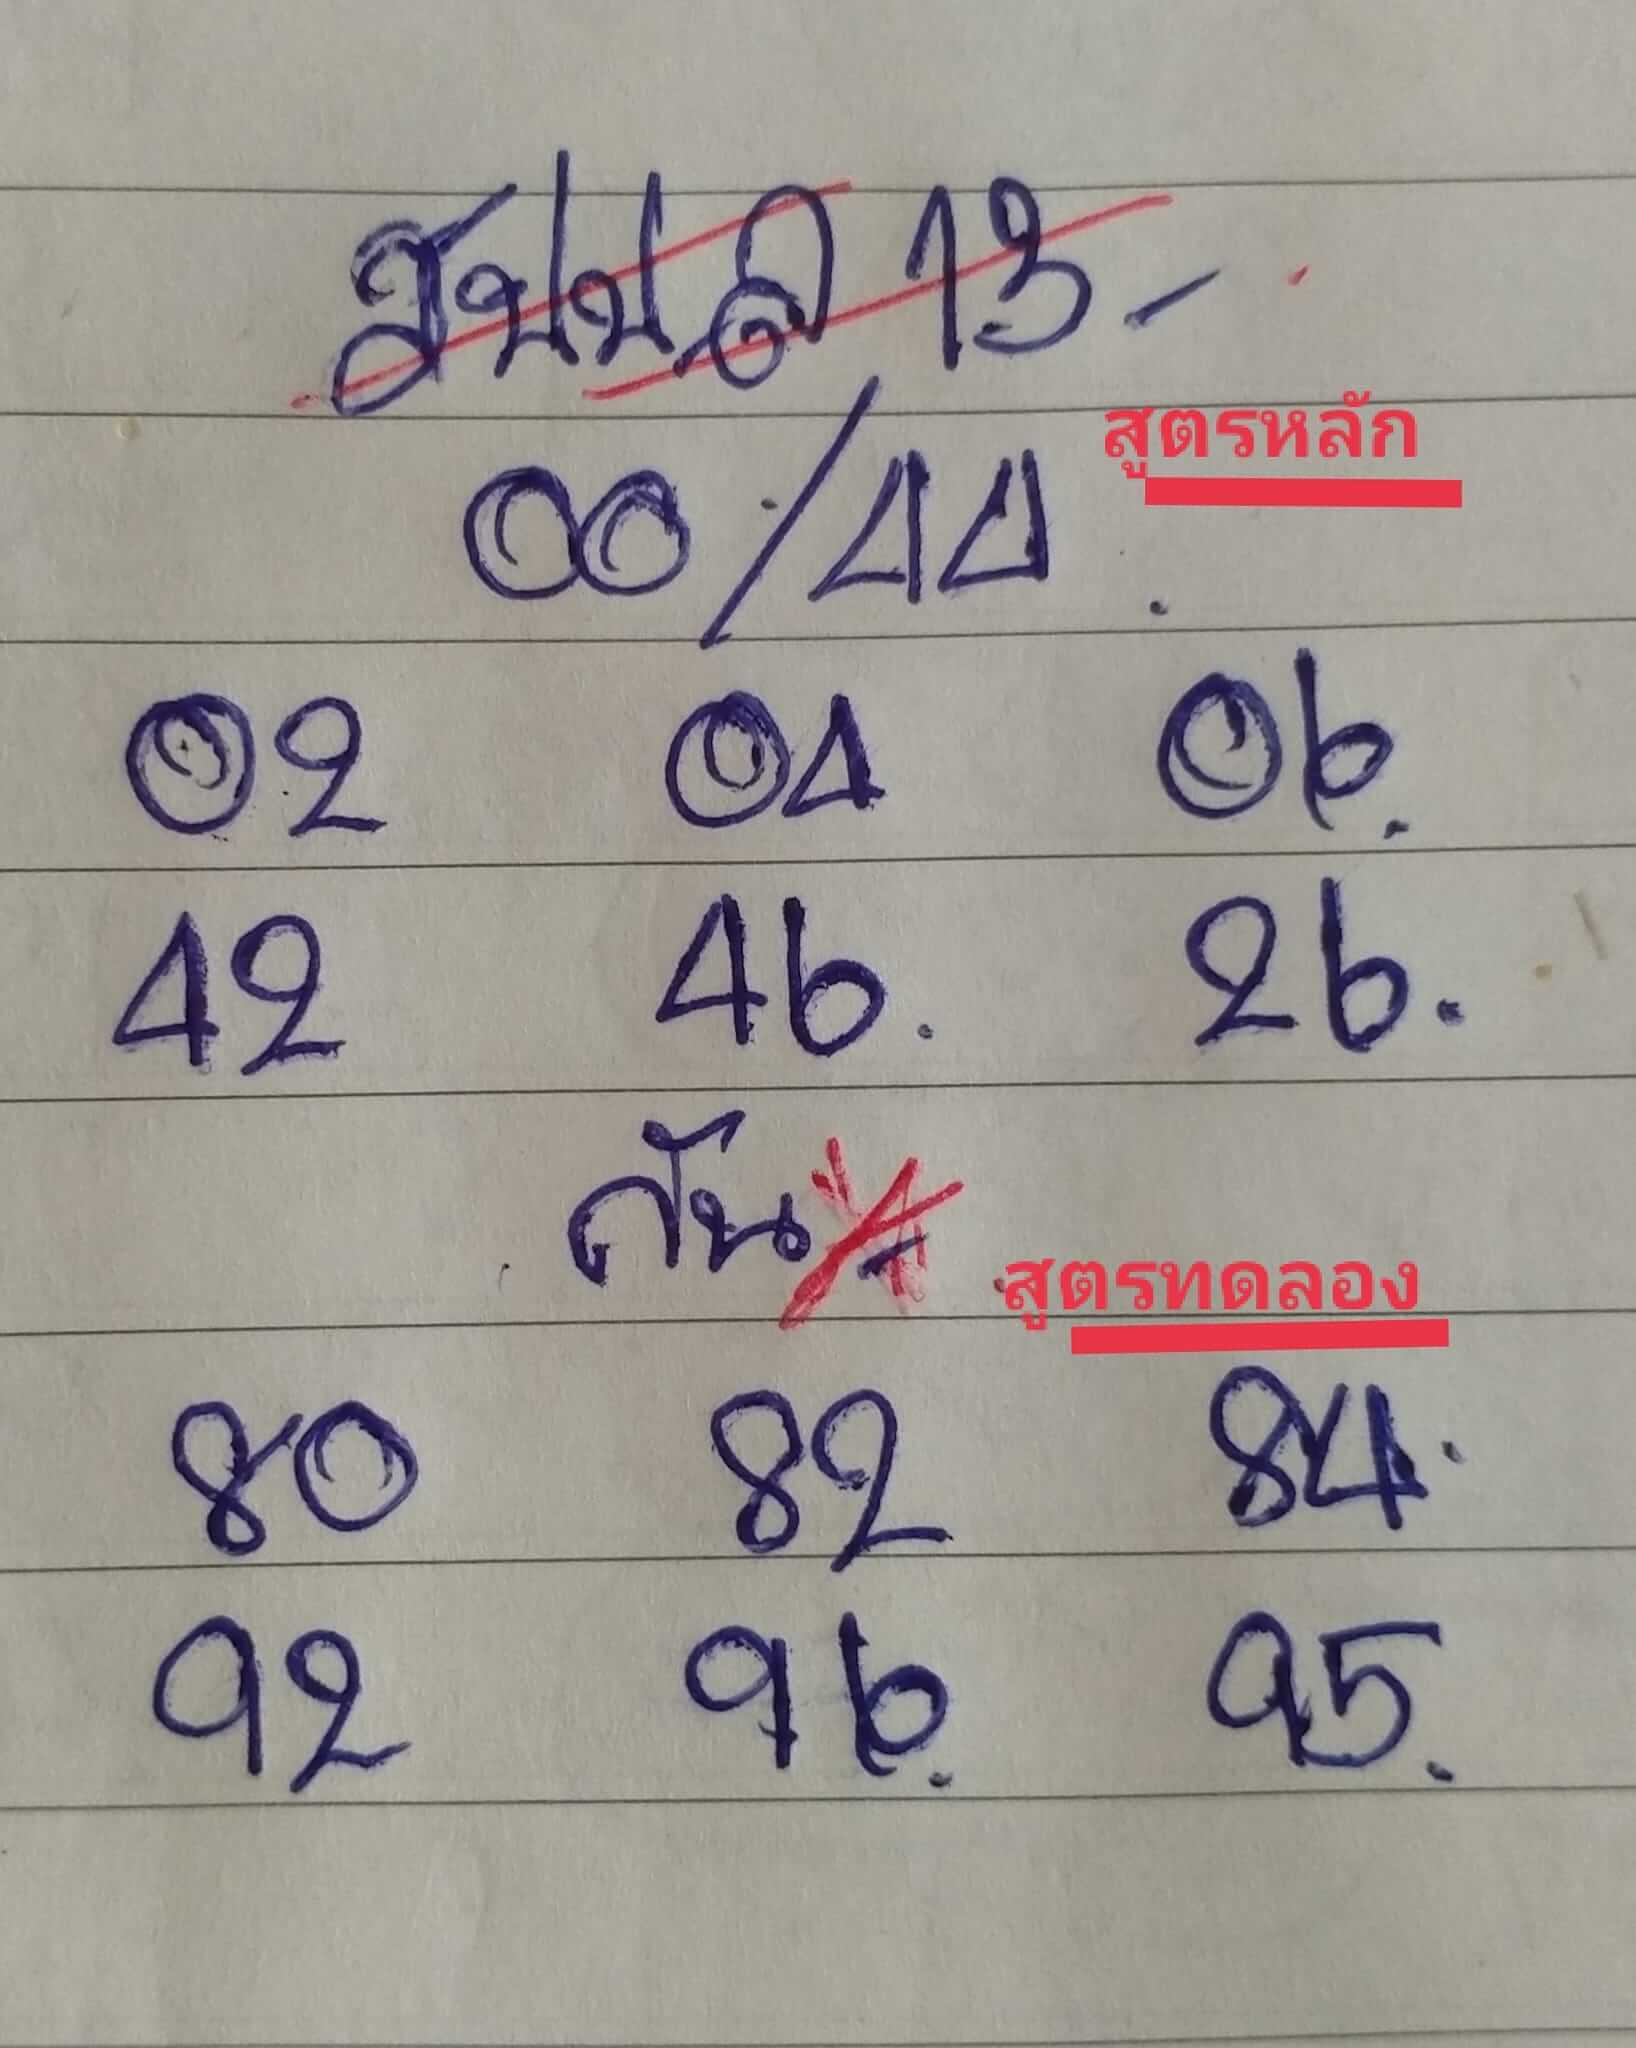 13-
สูตรหลัก
00/44
02 04 06.
42 46. 26.
กัน
สูตรทดลอง
80 82 84.
92 96. 95.